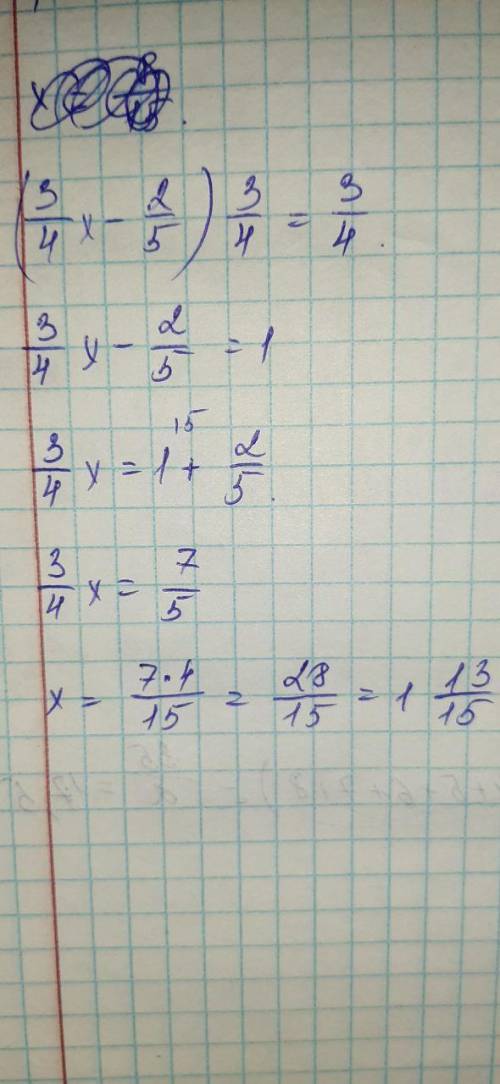 (3/4 x - 2/5) 3/4 = 3/4.
3/4 x - 2/5 = 1
3/4 x = 1 + 2/5.
3/4 x = 7/5
x = 7·4/15 = 28/15 = 1 13/15